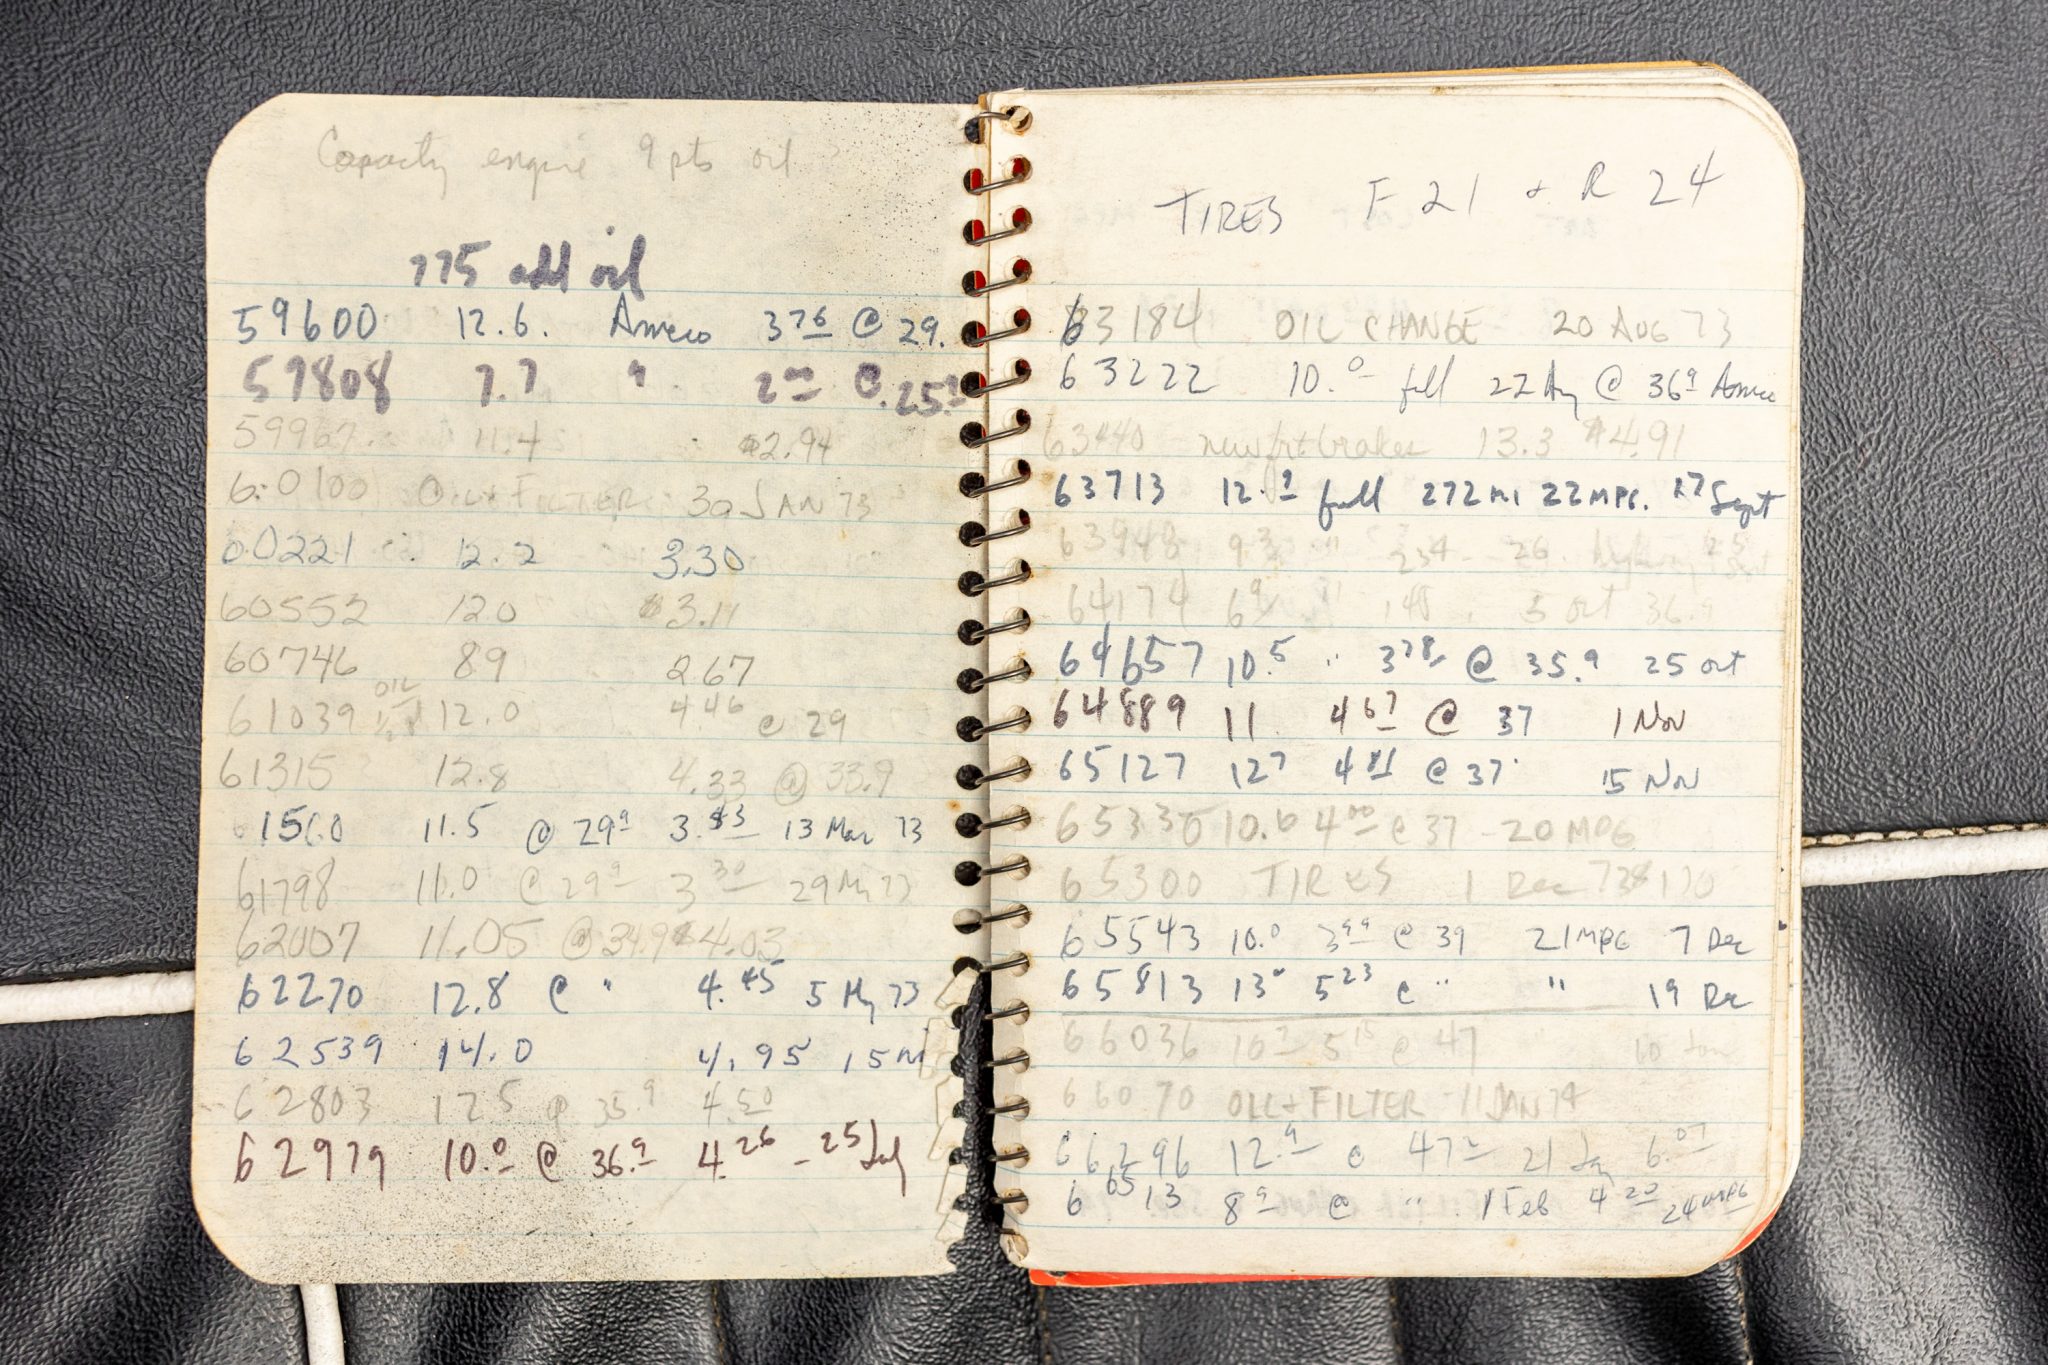 Capacity engine 9 pts oil
775 add oil
59600 12.6. Amoco 3 76 @ 29.
59808 7.7 " 2 00 @ .25.9
59967. 11.4 $2.94
60100 OIL + FILTER 30 JAN 73
60221 12.2 3.30
60552 120 $3.11
60746 89 267
61039 OIL 12.0 4 46 @ 29
61315 12.8 4.33 @ 33.9
11.5 @ 29 9 3. 13 Mar 73
61798 11.0 @ 29 9 3 30 29 73
62007 11.05 @ 34.9 $4.03
62270 12.8 @ " 4.45 5 My 73
62539 14.0 4.95 15 M
62803 125 @ 35.9 4.50
62979 10.0 @ 36.9 4.26 - 25 July
TIRES F 21 + R 24
63184 OIL CHANGE 20 AUG 73
63222 10.0 full 22 Aug @ 36 9 Amoco
63440 new frt brakes 13.3 $4.91
63713 12.9 full 272 MI 22 MPG. 27 Sept
63948 9.3 " 234 - 26. highway
64174 6 9 " 148 3 Oct 36.9
64657 10 5 " 3 78 @ 35.9 25 Oct
64889 11 4 67 @ 37 1 Nov
65127 12 7 4 81 @ 37 15 Nov
65335 10.6 4 00 @ 37 - 20 MPG
65300 TIRES 1 Dec 73 $170
65543 10.0 3 99 @ 39 21 MPG 7 Dec
65813 13 0 5 23 @ " " 19 Dec
66036 10 9 5 15 @ 47 10 Jan
66070 OIL + FILTER 11 JAN 74
66296 12.9 @ 47 21 Jan 6.07
66513 8 9 @ " 1 Feb 4 20 24 MPG